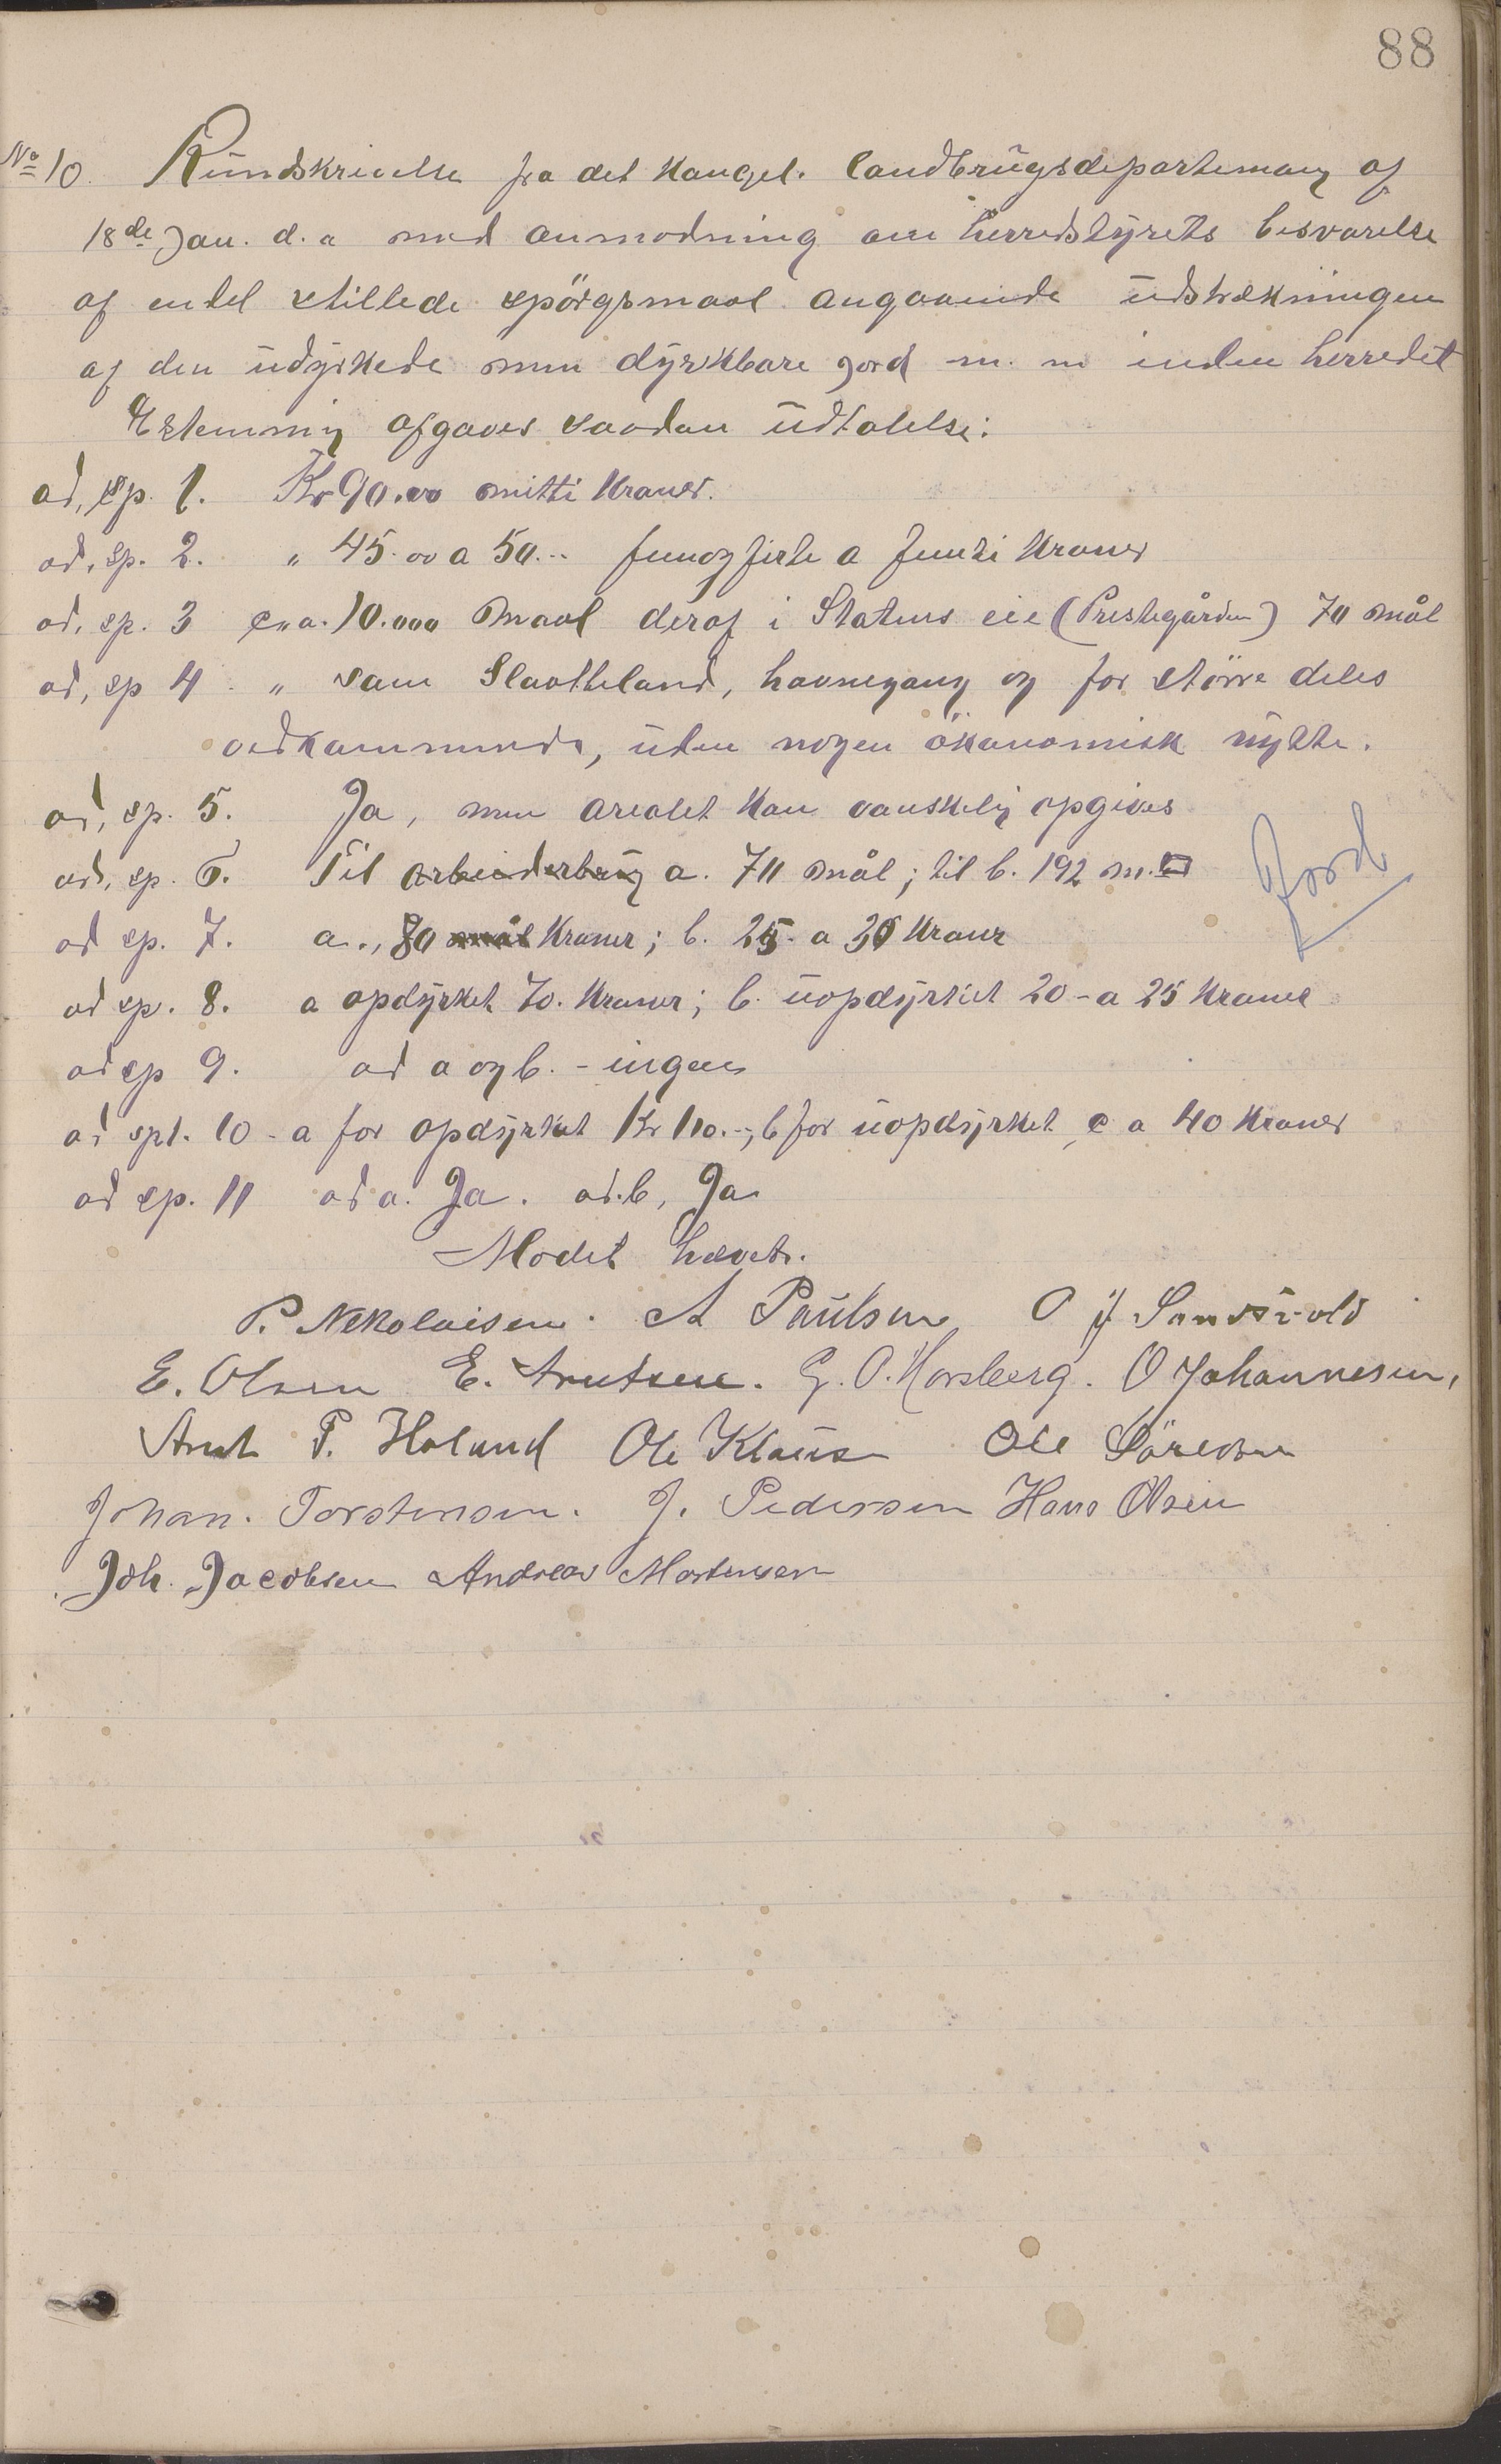 88
No 10. Rundskrivelse fra det kongel. landbrugsdepartemang af
18de Jan. d. a med anmodning om herredstyrets besvarelse
af endel stillede spörgsmaal angaaende udstrækningen
af den udyrkede men dyrkbare jord m. m inden herredet
Estemmig afgaves saadan udtalelse:
ad, sp. 1. Kr 90.00 nitti kroner.
ad, sp. 2. " 45.00 a 50... femogfirti a femti kroner
ad, sp. 3 c"a. 10.000 maal deraf i Statens eie (Prestegården) 70 mål
ad, sp 4 " som Slaatteland, havnegang og for större deles
vedkommende, uden nogen ökonomisk nytte.
ad, sp. 5. Ja, men arealet kan vanskelig opgives
ad, sp. 6. Til arbeiderbrug a. 711 mål; til b. 192 m.
Jord
ad sp. 7. a., 80 mål kroner; b. 25 - a 30 kroner
ad sp. 8. a opdyrket 70. kroner; b. uopdyrket 20 - a 25 kroner
ad sp 9. ad a og b. - ingen
ad spl. 10 - a for opdyrket Kr 110.-, b for uopdyrket c a 40 kroner
ad sp. 11 ad a. Ja. ad.b, Ja
Mödet hævet.
P. Nikolaisen. A Paulsen O J Sandsvold
E. Olsen E. Arntsen. G. O. Horsberg. O Johannesen,
Arnt P. Holand Ole Klaus Ole Sörensen
Johan. Torstensen. J. Pedersen Hans Olsen
Joh. Jacobsen Andreas Mortensen